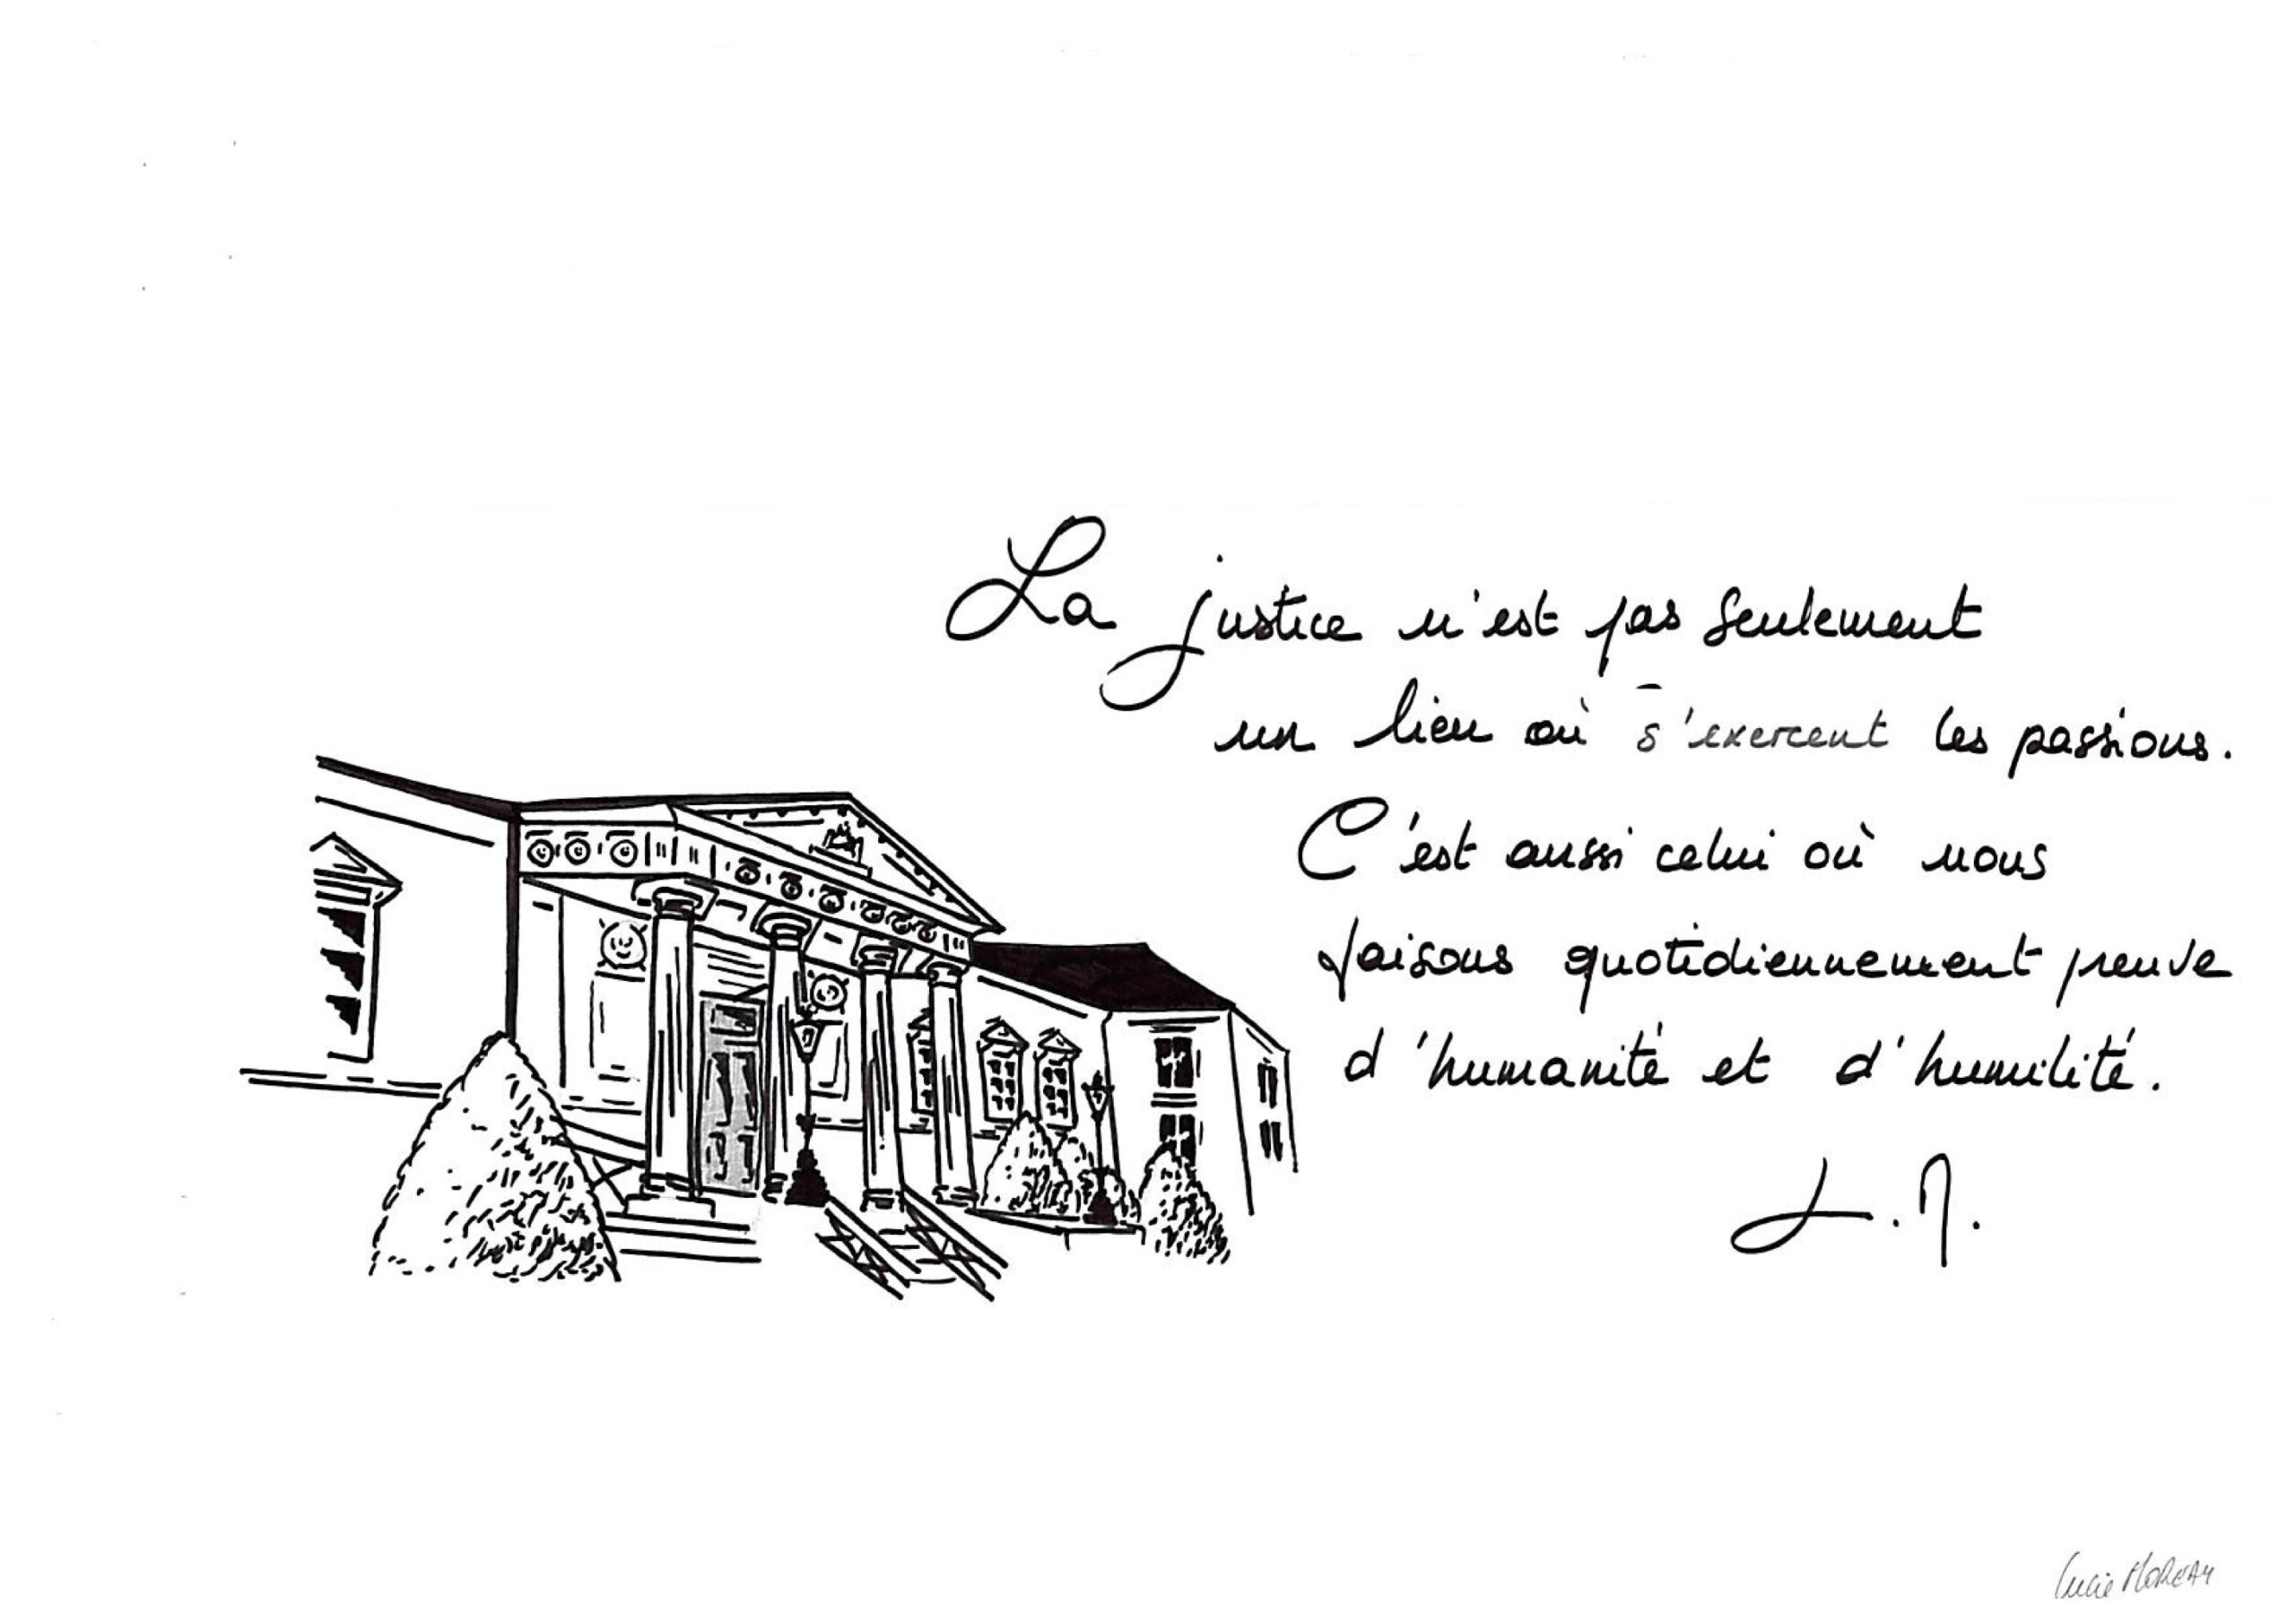 La justice n'est pas seulement
un lieu où s'exercent les passions.
C'est aussi celui où nous
faisons quotidiennement preuve
d'humanité et d'humilité.
L.M.
Lucie MOREAU